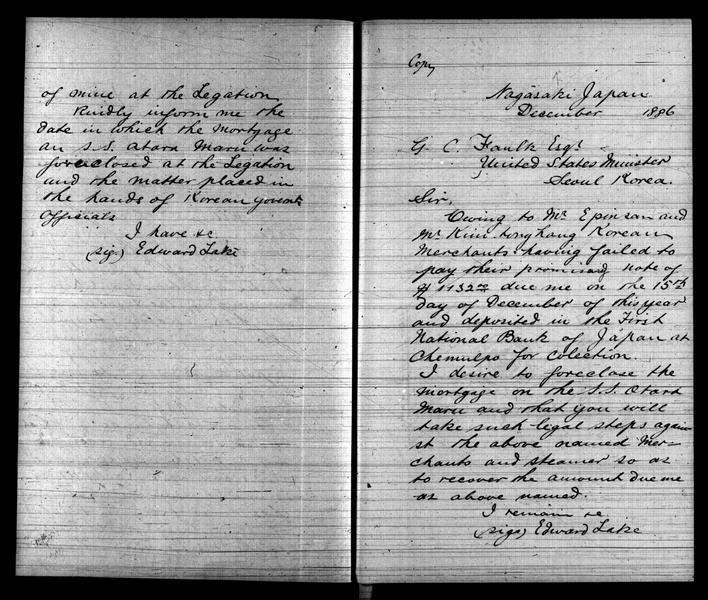 of mine at the Legation
Kindly inform me the
date in which the mortgage
on S.S. Otara Maru was
foreclosed at the Legation
and the matter placed in
the hands of Korean Govent
Officials
I have &c
(sig.) Edward Lake
Copy
Nagasaki Japan
December 1886
G C. Foulk Esqr
United States Minister
Seoul Korea.
Sir,
Owing to Mr Epinsan and
Mr Kim Korean
Merchants having failed to
pay their promisary note of
due me on the 15th
day of December of this year
and deposited in the First
National Bank of Japan at
Chemulpo for colection.
I desire to foreclose the
mortgage on the S.S. Otara
Maru and that you will
take such legal steps again
st the above named Mer-
chants and steamer so as
to recover the amount due me
as above named.
I remain &c
(sign) Edward Lake